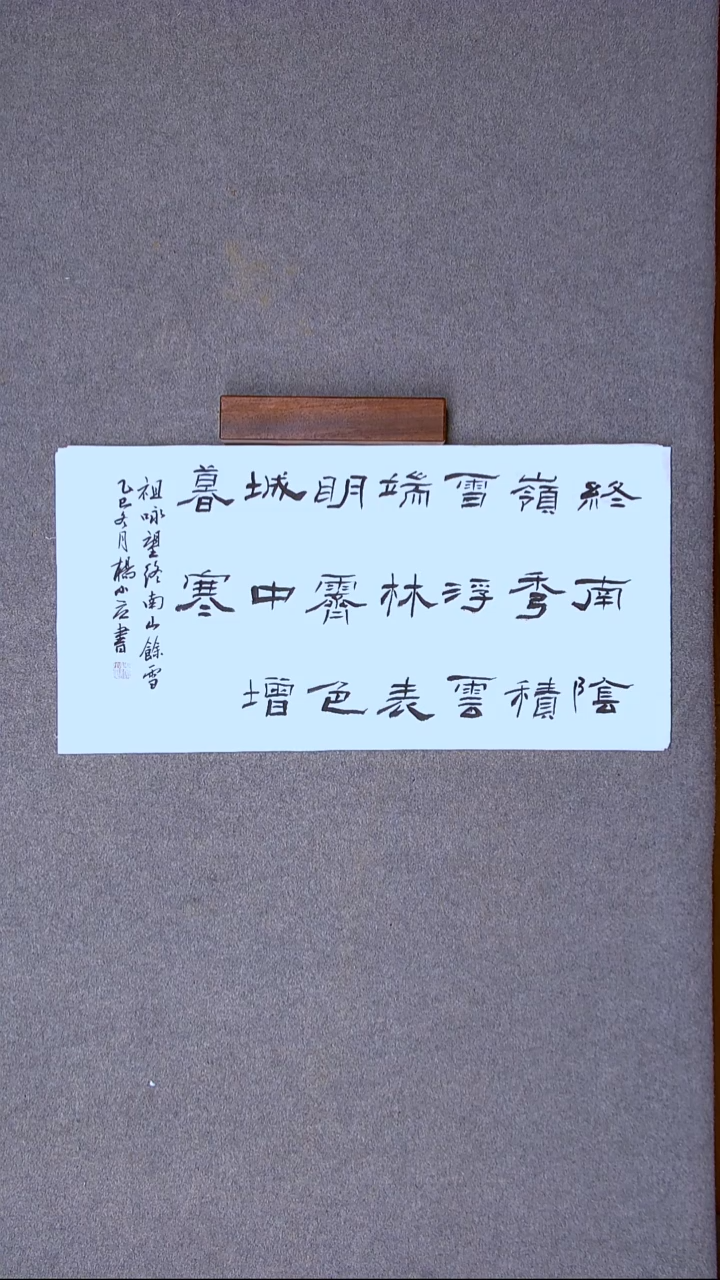 終南陰
嶺秀積
雪浮雲
端林表
明霽色
城中增
暮寒
祖咏望終南山餘雪
乙巳冬月楊小
書